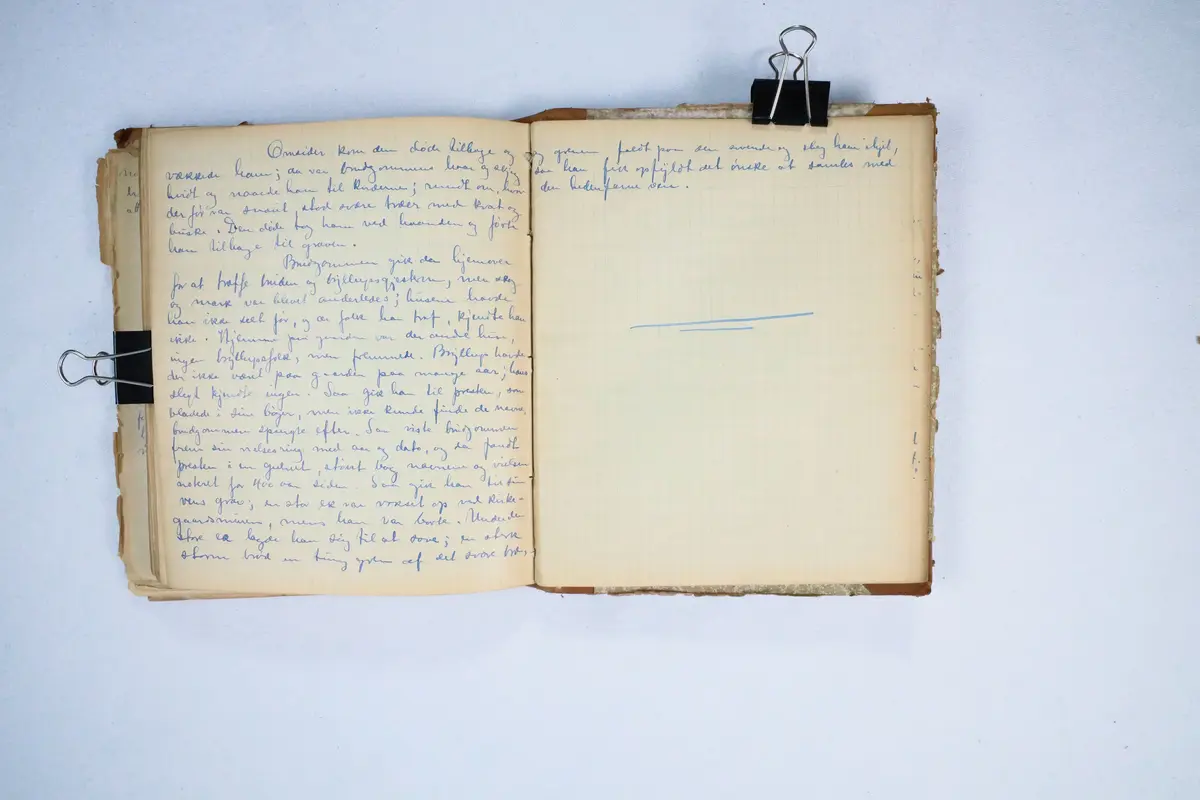 Omsider kom den døde tilbage og
vækkede ham; da var brudgommens haar og skjeg
hvidt og naaede ham til knæerne; rundt om, hvor
der før var snaut, stod svære trær med krat og
buske. Den døde tog ham ved haanden og førte
ham tilbage til graven.
Brudgommen gik da hjemover
for at træffe bruden og bryllupsgjesterne, men skog
og mark var blevet anderledes; husene havde
han ikke set før, og de folk han traf, kjendte han
ikke. Hjemme paa gaarden var der andre hus,
ingen bryllupsfolk, men fremmede. Bryllup havde
der ikke været paa gaarden paa mange aar; hans
slegt kjendte ingen. Saa gik han til presten, som
bladede i sine bøger, men ikke kunde finde de navne,
brudgommen spurgte efter. Saa viste brudgommen
frem sin vielsesring med aar og dato, og da fandt
presten i en gulnet, støvet bog navnene og vielsen
noteret for 400 aar siden. Saa gik han til sin
vens grav; en stor ek var vokset op ved kirke-
gaardsmuren, mens han var borte. Under den
store ek lagde han sig til at sove; en sterk
storm brød en tung gren af det svære træ,
og grenen faldt paa den sovende og slog ham ihjel,
saa han fik opfyldt det ønske at samles med
den hedenfarne ven.